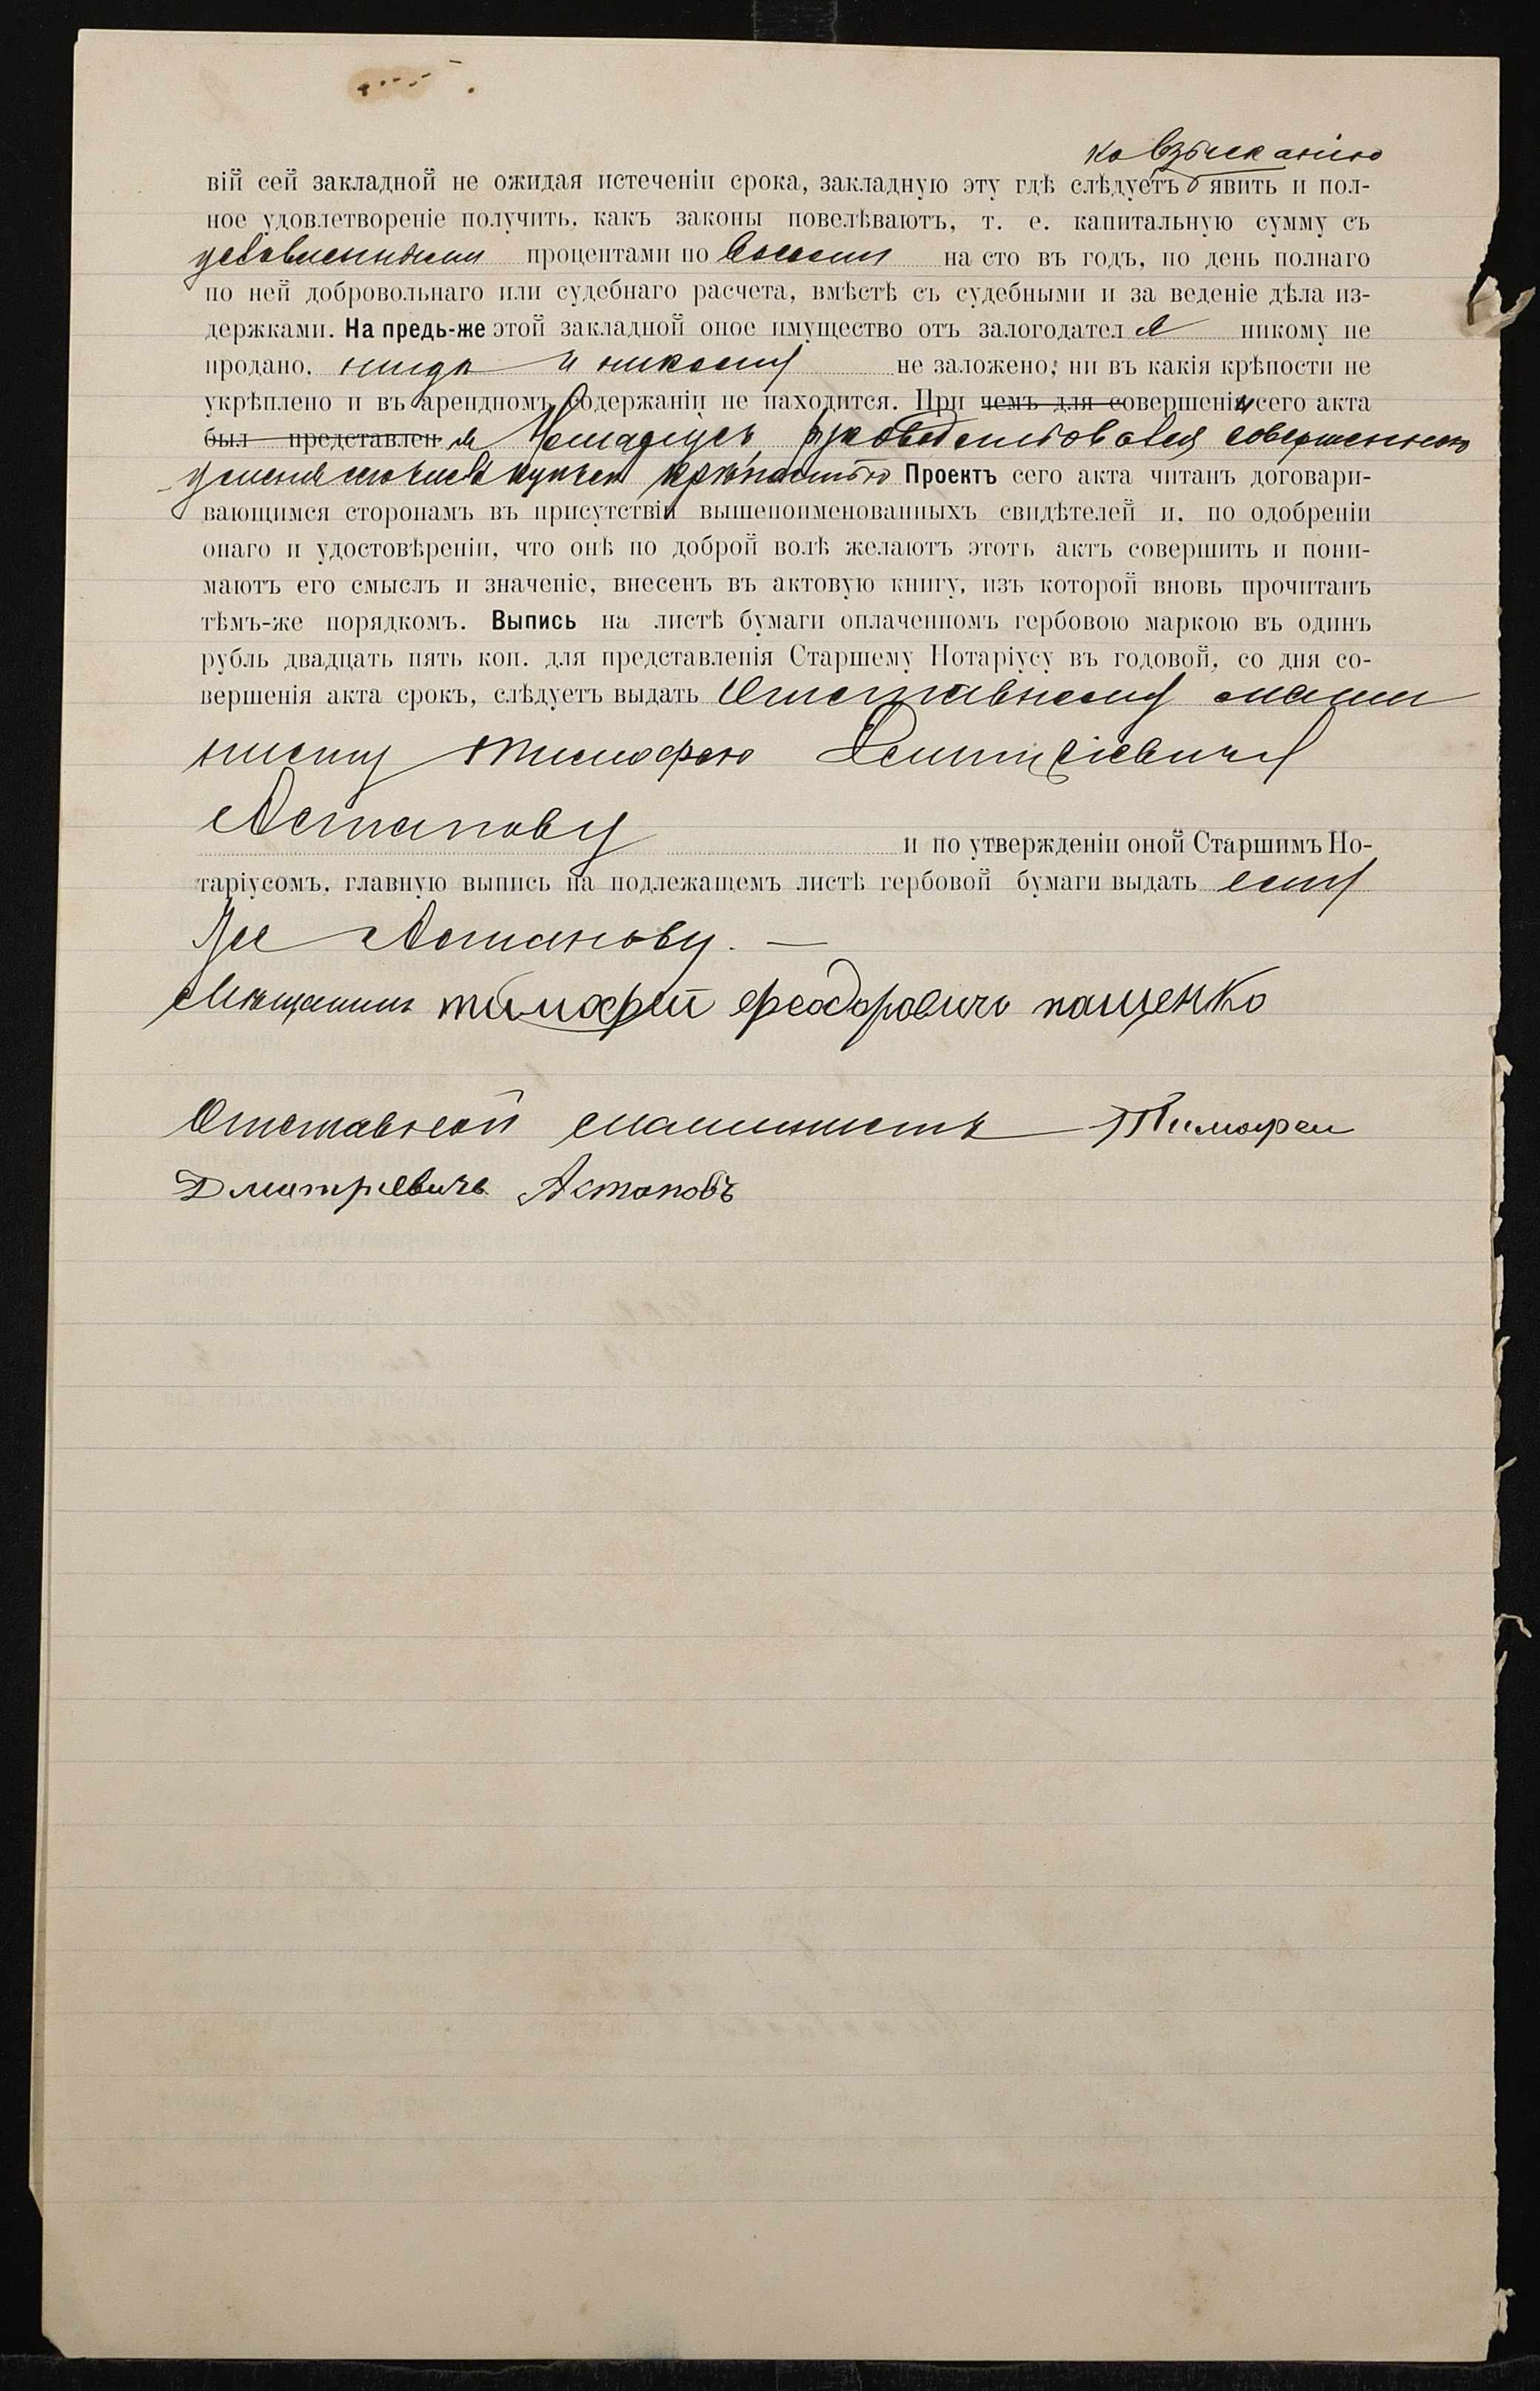 ко взысканію
вій сей закладной не ожидая истеченіи срока, закладную эту гдѣ слѣдуетъ явить и пол-
ное удовлетвореніе получить. какъ законы повелѣваютъ, т. е. капитальную сумму съ
условленными процентами по восьми на сто въ годъ, по день полнаго
по ней добровольнаго или судебнаго расчета, вмѣстѣ съ судебными и за веденіе дѣла из-
держками. На предь-же этой закладной оное имущество отъ залогодателя никому не
продано, нигдѣ и никому не заложено; ни въ какія крѣпости не
укрѣплено и въ арендномъ содержаніи не находится. При чемъ для совершеніи сего акта
был представлен я Нотаріусъ, руководствовался совершенною
у меня сего числа купчею крѣпостью Проектъ сего акта читанъ договари-
вающимся сторонамъ въ присутствіи вышепоименованныхъ свидѣтелей и, по одобреніи
онаго и удостовѣреніи, что онѣ по доброй волѣ желаютъ этотъ актъ совершить и пони-
маютъ его смыслъ и значеніе, внесенъ въ актовую книгу, изъ которой вновь прочитанъ
тѣмъ-же порядкомъ. Выпись на листѣ бумаги оплаченномъ гербовою маркою въ одинъ
рубль двадцать пять коп. для представленія Старшему Нотаріусу въ годовой, со дня со-
вершенія акта срокъ, слѣдуетъ выдать Отставному маши
нисту Тимофею Дмитріевичу
Астапову и по утвержденіи оной Старшимъ Но-
таріусомъ, главную выпись на подлежащемъ листѣ гербовой бумаги выдать ему
же Астапову. —
Мѣщанинъ тимофей феодоровичъ пащенко
Отставной машинистъ Тимофеи
Дмитріевичъ Астаповъ